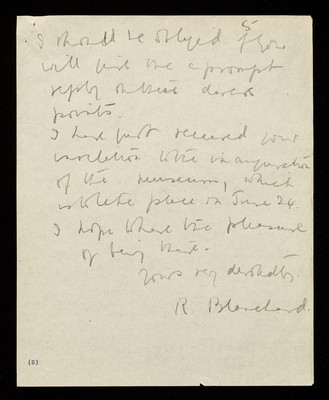 5
I should be obliged if you
will give me a prompt
reply on these divers
points.
I have just received your
invitation to the inauguration
of the museum, which
is to take place on June 24.
I hope to have the pleasure
of being there.
Yours very devotedly
R. Blanchard.